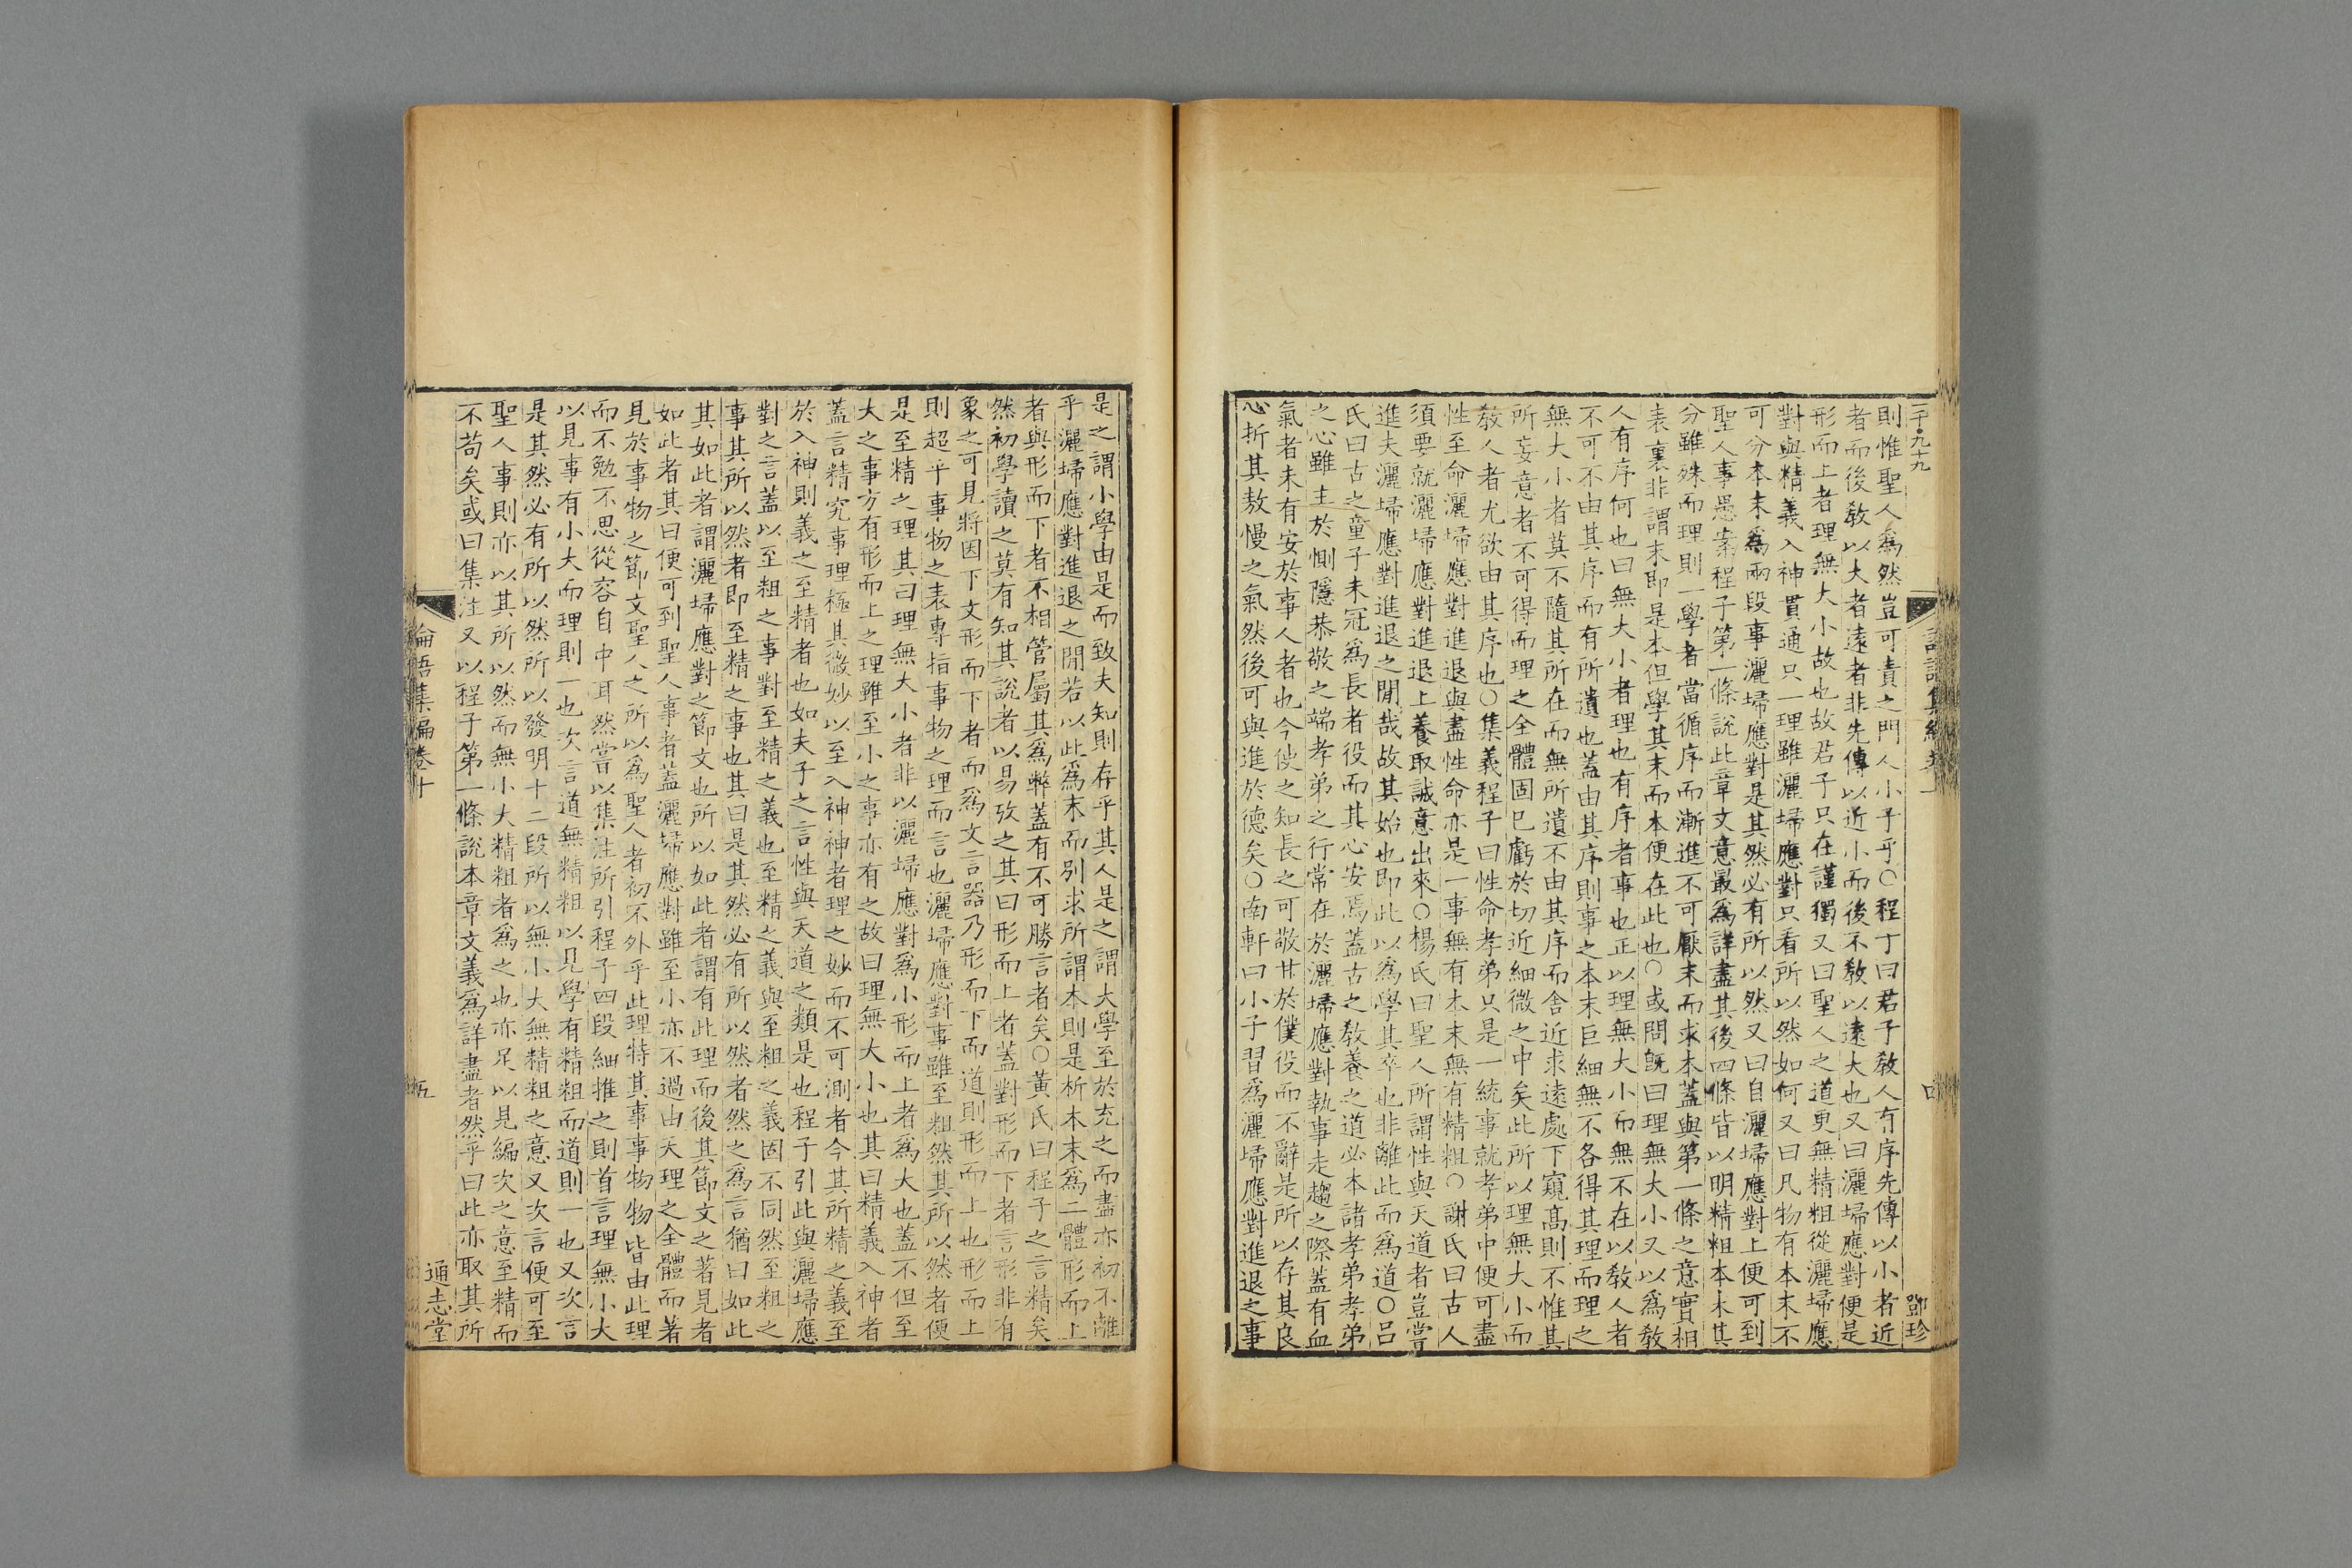 二千九十九
則惟聖人爲然豈可責之門人小子乎○程子曰君子敎人有序先傳以小者近
者而後敎以大者遠者非先傳以近小而後不敎以遠大也又曰灑埽應對便是
形而上者理無大小故也故君子只在謹獨又曰聖人之道更無精粗從灑埽應
對與精義入神貫通只一理雖灑埽應對只看所以然如何又曰凡物有本末不
可分本末爲兩段事灑埽應對是其然必有所以然又曰自灑埽應對上便可到
聖人事愚案程子第一條說此章文意最爲詳盡其後四條皆以明精粗本末其
分雖殊而理則一學者當循序而漸進不可厭末而求本蓋與第一條之意實相
表裏非謂末即是本但學其末而本便在此也○或問旣曰理無大小又以爲敎
人有序何也曰無大小者理也有序者事也正以理無大小而無不在以敎人者
不可不由其序而有所遺也蓋由其序則事之本末巨細無不各得其理而理之
無大小者莫不隨其所在而無所遺不由其序而舍近求遠處下窺高則不惟其
所妄意者不可得而理之全體固已虧於切近細微之中矣此所以理無大小而
敎人者尤欲由其序也○集義程子曰性命孝弟只是一統事就孝弟中便可盡
性至命灑埽應對進退與盡性命亦是一事無有本末無有精粗○謝氏曰古人
須要就灑埽應對進退上養取誠意出來○楊氏曰聖人所謂性與天道者豈嘗
進夫灑埽應對進退之閒哉故其始也即此以爲學其卒也非離此而爲道○呂
氏曰古之童子未冠爲長者役而其心安焉蓋古之敎養之道必本諸孝弟孝弟
之心雖主於惻隱恭敬之端孝弟之行常在於灑埽應對執事走趨之際蓋有血
氣者未有安於事人者也今使之知長之可敬甘於僕役而不辭是所以存其良
心折其敖慢之氣然後可與進於德矣○南軒曰小子習爲灑埽應對進退之事
鄧珍
是之謂小學由是而致夫知則存乎其人是之謂大學至於充之而盡亦初不離
乎灑埽應對進退之閒若以此爲末而別求所謂本則是析本末爲二體形而上
者與形而下者不相管屬其爲弊蓋有不可勝言者矣○黃氏曰程子之言精矣
然初學讀之莫有知其說者以易攷之其曰形而上者蓋對形而下者言形非有
象之可見將因下文形而下者而爲文言器乃形而下而道則形而上也形而上
則超乎事物之表專指事物之理而言也灑埽應對事雖至粗然其所以然者便
是至精之理其曰理無大小者非以灑埽應對爲小形而上者爲大也蓋不但至
大之事方有形而上之理雖至小之事亦有之故曰理無大小也其曰精義入神者
蓋言精究事理極其微妙以至入神神者理之妙而不可測者今其所精之義至
於入神則義之至精者也如夫子之言性與天道之類是也程子引此與灑埽應
對之言蓋以至粗之事對至精之義也至精之義與至粗之義固不同然至粗之
事其所以然者即至精之事也其曰是其然必有所以然者然之爲言猶曰如此
其如此者謂灑埽應對之節文也所以如此者謂有此理而後其節文之著見者
如此者其曰便可到聖人事者蓋灑埽應對雖至小亦不過由天理之全體而著
見於事物之節文聖人之所以爲聖人者初不外乎此理特其事事物物皆由此理
而不勉不思從容自中耳然嘗以集注所引程子四段細推之則首言理無小大
以見事有小大而理則一也次言道無精粗以見學有精粗而道則一也又次言
是其然必有所以然所以發明十二段所以無小大無精粗之意又次言便可至
聖人事則亦以其所以然而無小大精粗者爲之也亦足以見編次之意至精而
不苟矣或曰集注又以程子第一條說本章文義爲詳盡者然乎曰此亦取其所
論語集編卷十
五
通志堂